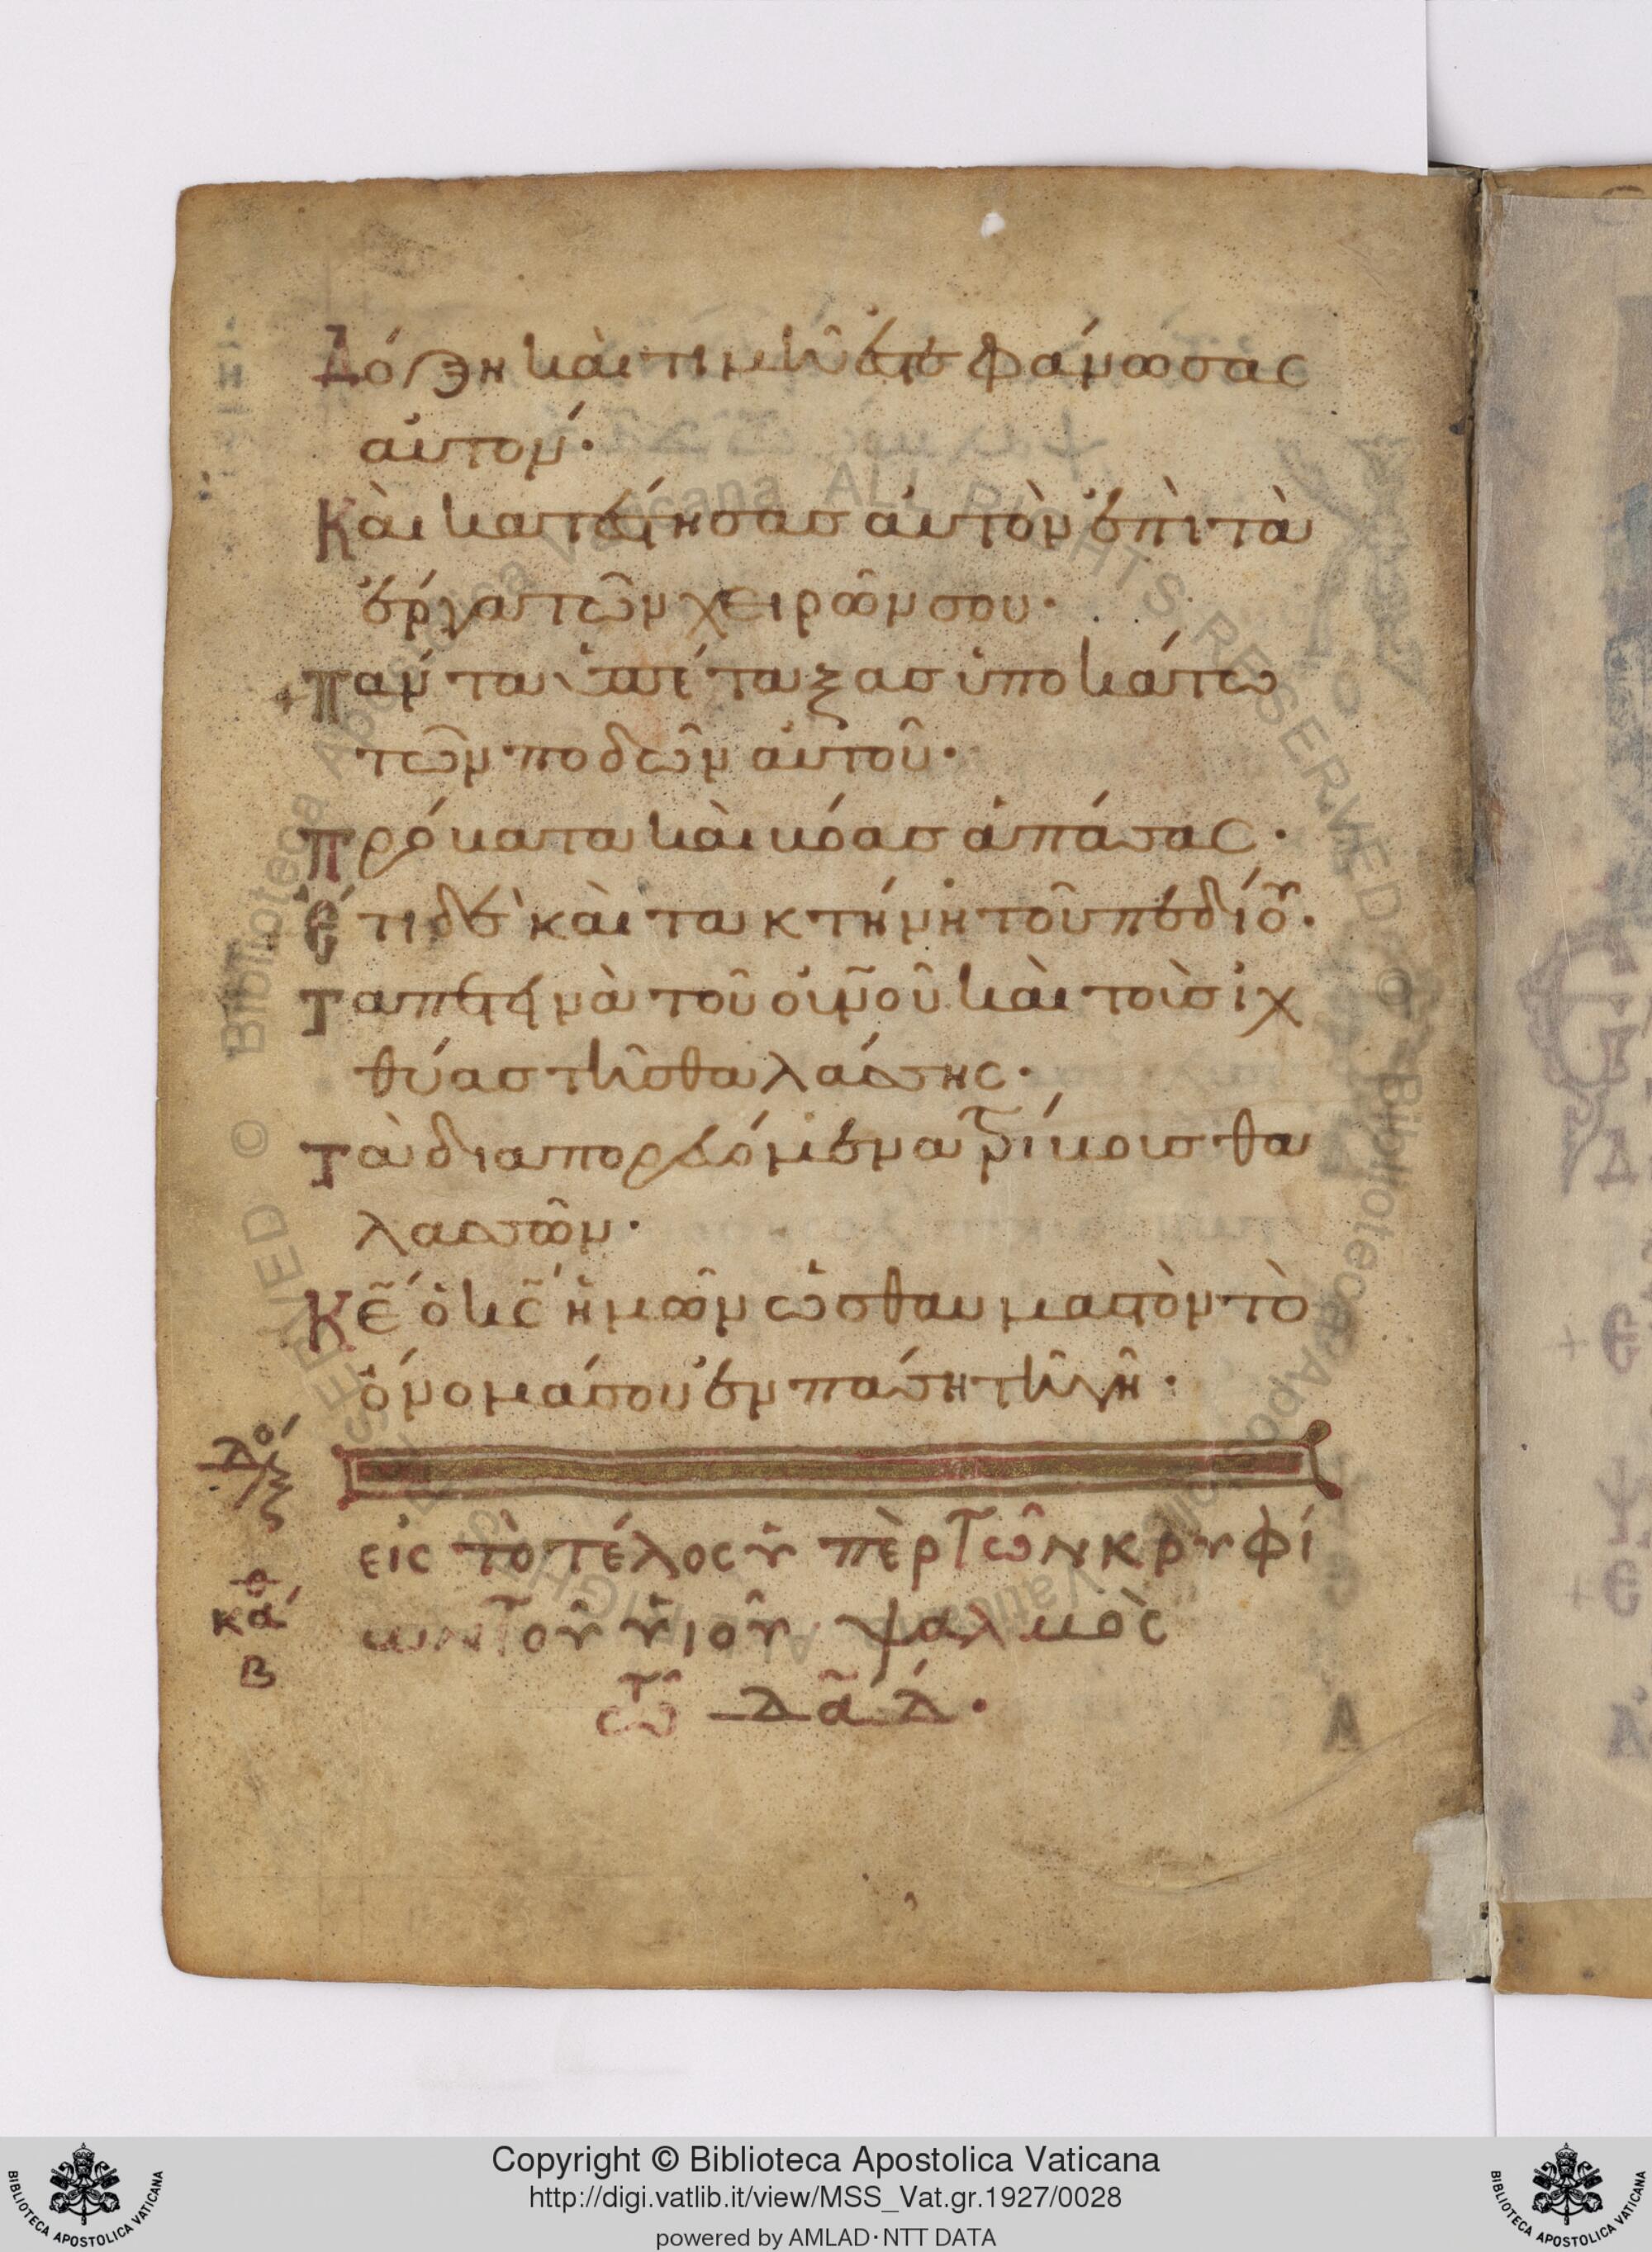 Δόξη καὶ τιμῆ ἐστεφάνωσας
αὐτον·
Καὶ κατέστησασ αὐτὸν ἐπὶ τὰ
ἔργα τῶν χειρῶν σου·
+ Πάντα ὑπέταξασ ὑποκάτω
τῶν ποδῶν αὐτοῦ·
Πρόβατα καὶ βόασ ἁπάσας·
Ἔτι δὲ καὶ τα κτήνη τοῦ πεδίου·
Τα πετεινὰ τοῦ οὐνοῦ καὶ τοὺσ ἰχ
θύασ τῆσ θαλάσσης·
Τὰ διαπορευόμενα τρίβουσ θα
λασσῶν·
Κε ὁ κς ἡμῶν ὡσ θαυμαστὸν τὸ
ὄνομά σου ἐν πάση τῆ γῆ·
εἰς τὸ τέλος ὑπὲρ τῶν κρυφί
ων τοῦ υἱοῦ ψαλμὸς
τῶ δαδ·
κα
β
Copyright © Biblioteca Apostolica Vaticana
http://digi.vatlib.it/view/MSS_Vat.gr.1927/0028
powered by AMLAD·NTT DATA
BIBLIOTECA APOSTOLICA VATICANA
BIBLIOTECA APOSTOLICA VATICANA